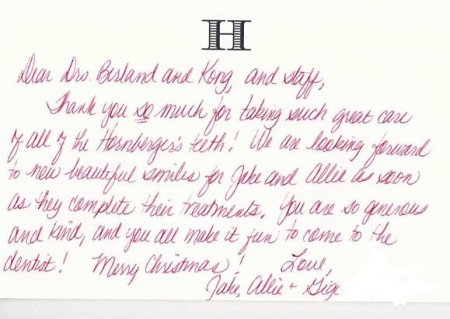 H
Dear Drs. Berland and Kong, and staff,
Thank you so much for taking such great care
of all of the Hornberger's teeth! We are looking forward
to new beautiful smiles for Jake and Allie as soon
as they complete their treatments. You are so generous
and kind, and you all make it fun to come to the
dentist! Merry Christmas! Love,
Jake, Allie +